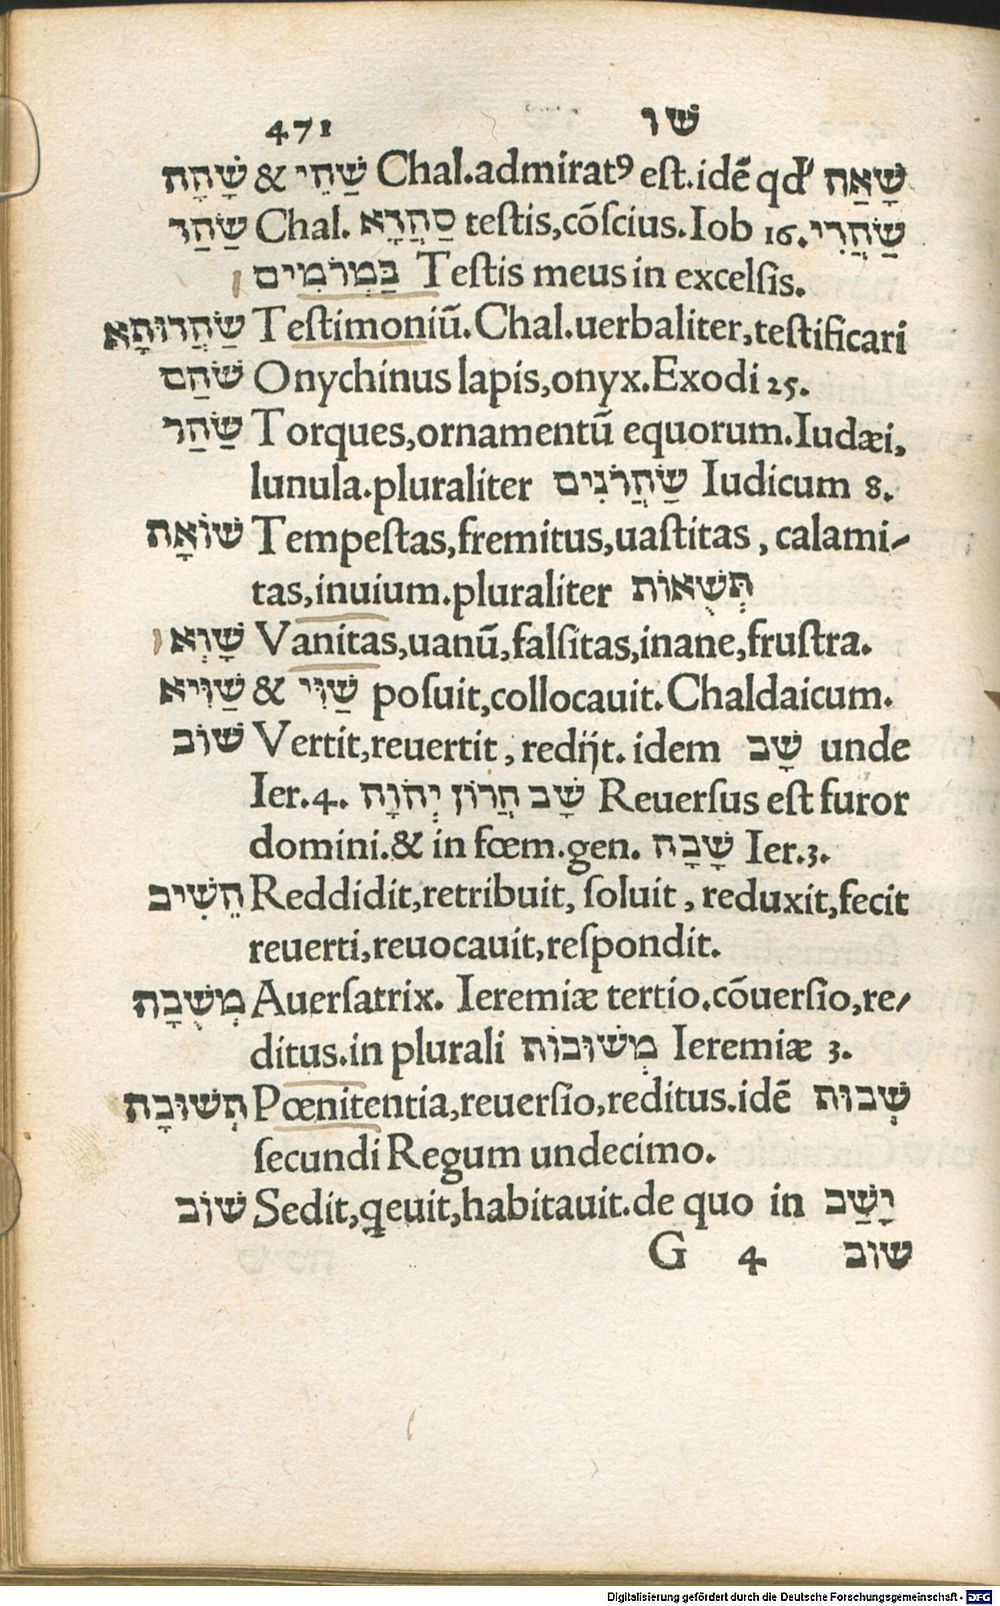 471 שו
שָׁהָה & שַׁהֵי Chal.admiratꝰ est.idē qd' שָׁאַה
שַׂהַד Chal. סַהֲדָא testis,cōscius.Iob 16.שַׂהֲדִי
בַּמְרֹמִים Testis meus in excelsis.
שַׂהֲדוּתָא Testimoniū.Chal.uerbaliter,testificari
שֹׁהַם Onychinus lapis,onyx.Exodi 25.
שַׂהַר Torques,ornamentū equorum.Iudæi,
lunula.pluraliter שַׂהֲרֹנִים Iudicum 8.
שׁוֹאָה Tempestas,fremitus,uastitas, calami-
tas,inuium.pluraliter תְּשֻׁאוֹת
שָׁוְא Vanitas,uanū,falsitas,inane,frustra.
שַׁוִּיא & שַׁוִּי posuit,collocauit.Chaldaicum.
שׁוּב Vertit,reuertit, redijt. idem שָׁב unde
Ier.4. שָׁב חֲרוֹן יְהֹוָה Reuersus est furor
domini.& in fœm.gen. שָׁבָה Ier.3.
הֵשִׁיב Reddidit,retribuit, soluit, reduxit,fecit
reuerti,reuocauit,respondit.
מְשֻׁבָה Auersatrix. Ieremiæ tertio.cōuersio,re-
ditus.in plurali מְשׁוּבוֹת Ieremiæ 3.
תְּשׁוּבָה Pœnitentia,reuersio,reditus.idē שְׁבוּת
secundi Regum undecimo.
שׁוֹב Sedit,qeuit,habitauit.de quo in יָשַׁב
G 4 שוב
Digitalisierung gefördert durch die Deutsche Forschungsgemeinschaft - DFG